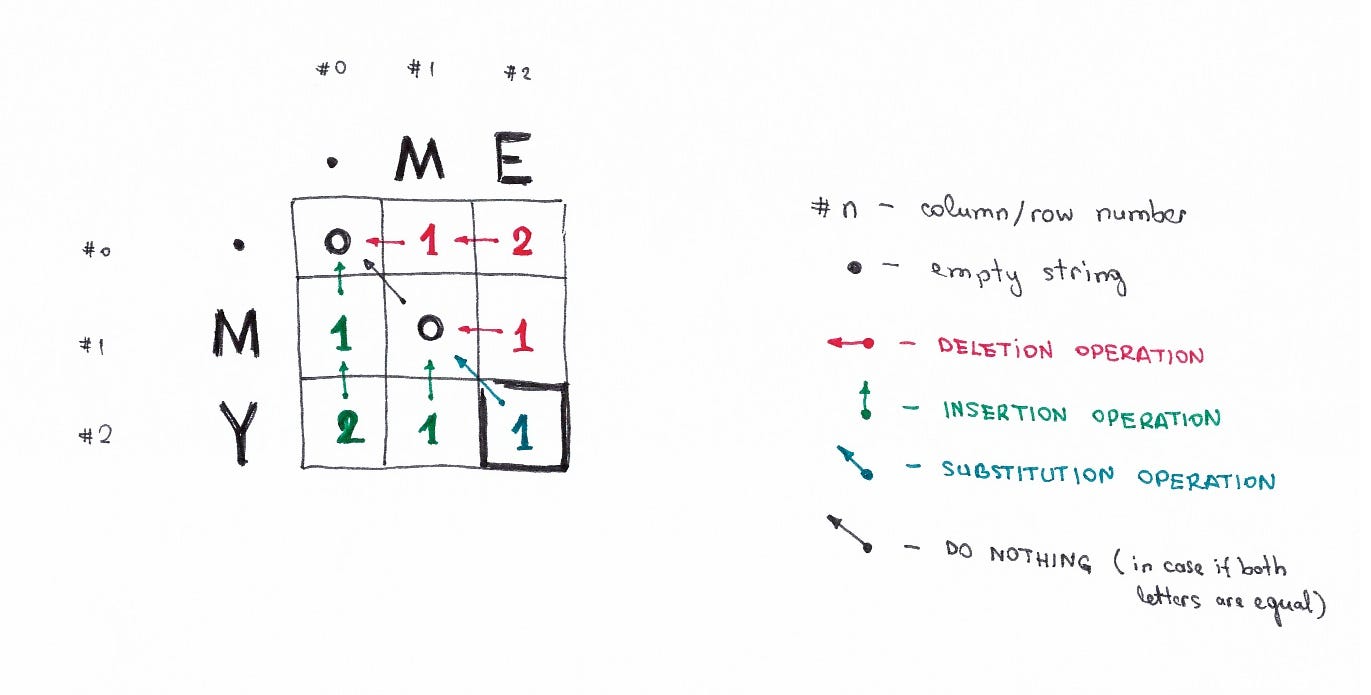 #0 #1 #2
• M E
#0 • 0 1 2
#1 M 1 0 1
#2 Y 2 1 1
#n – column/row number
• – empty string
– DELETION OPERATION
– INSERTION OPERATION
– SUBSTITUTION OPERATION
– DO NOTHING (in case if both
letters are equal)